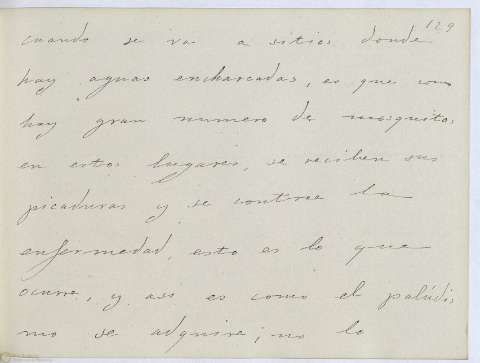 129
cuando se va a sitios donde
hay aguas encharcadas, es que como
hay gran numero de mosquitos
en estos lugares, se reciben sus
picaduras y se contrae la
enfermedad, esto es lo que
ocurre, y asi es como el palúdis
mo se adquire; no lo